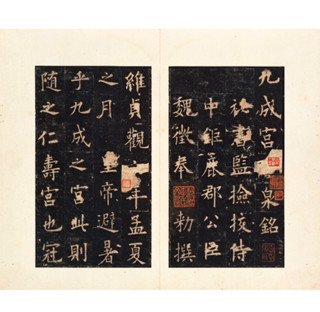 九成宮泉銘
祕書監撿挍侍
中鉅鹿郡公臣
魏徵奉 勅撰
維貞觀年孟夏
之月 皇帝避暑
乎九成之宮此則
随之仁壽宮也冠